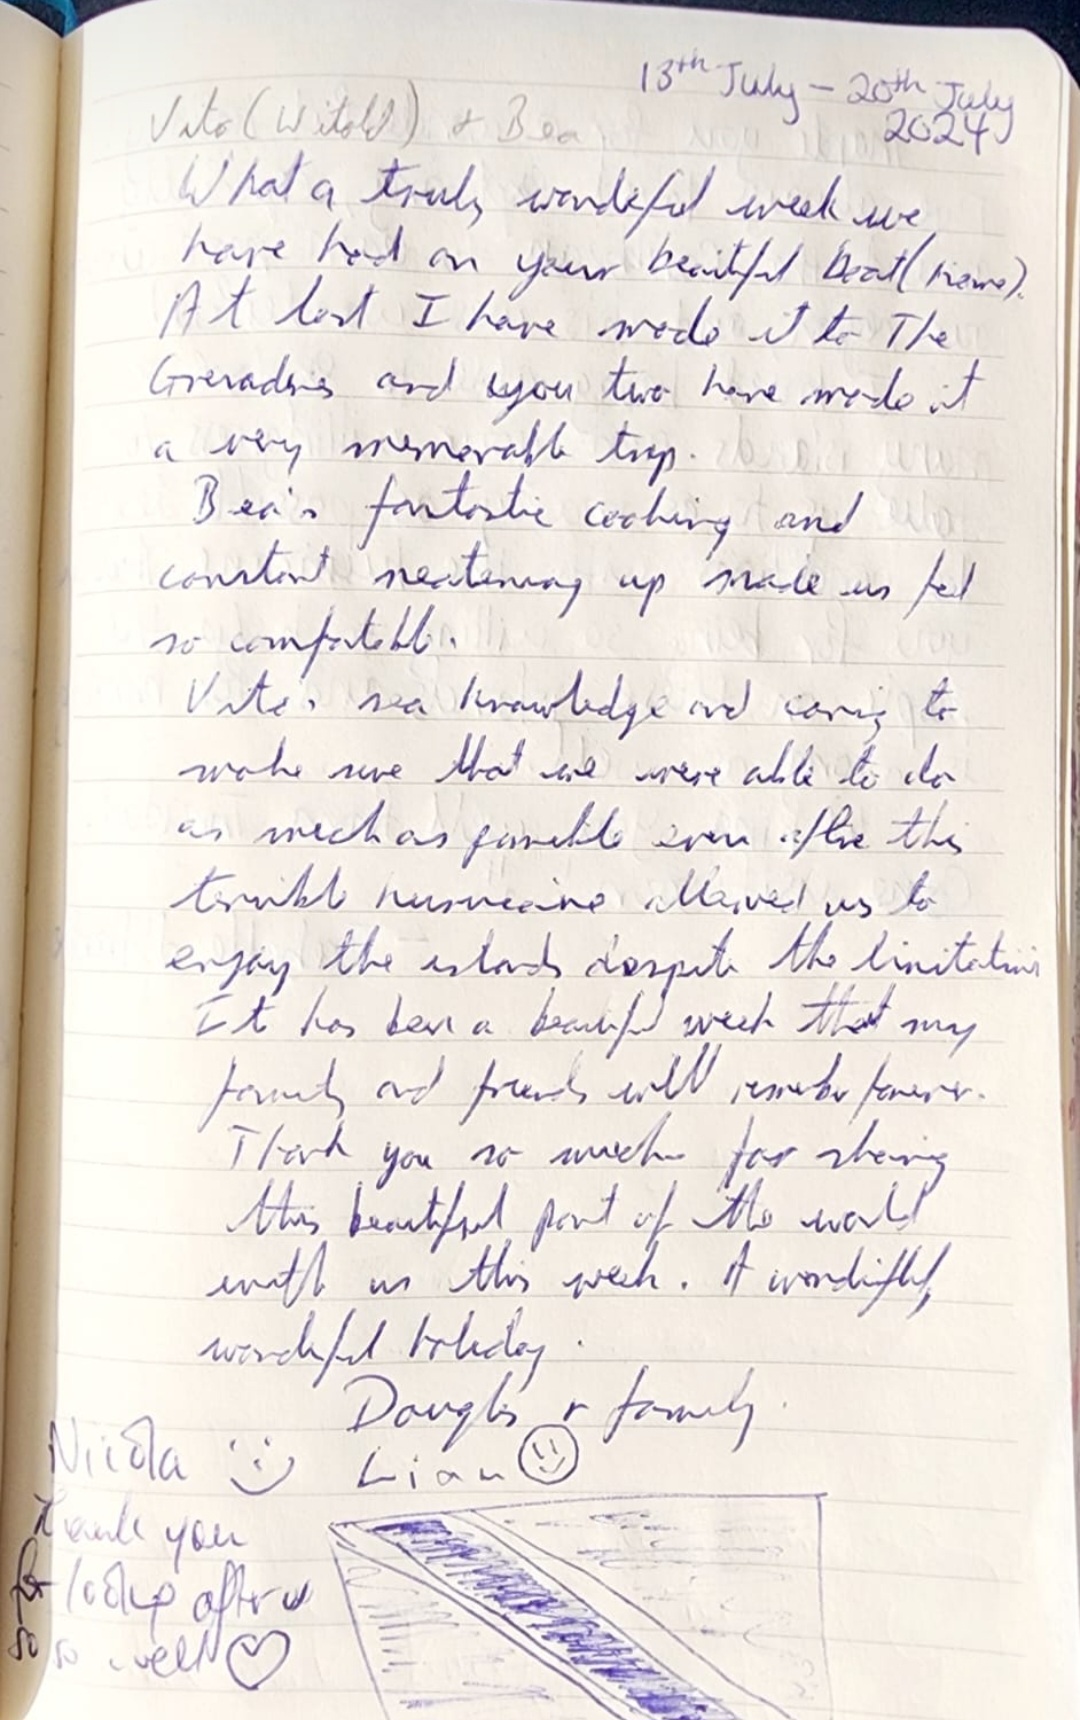 13th July - 20th July
2024
Vito (Witold) & Bea
What a truly wonderful week we
have had on your beautiful boat (home).
At last I have made it to The
Grenadines and you two have made it
a very memorable trip.
Bea's fantastic cooking and
constant neatening up made us feel
so comfortable.
Vito's sea knowledge and caring to
make sure that we were able to do
as much as possible even after this
terrible hurricane allowed us to
enjoy the islands despite the limitations
It has been a beautiful week that my
family and friends will remember forever.
Thank you so much for sharing
this beautiful part of the world
with us this week. A wonderful,
wonderful holiday.
Douglas & family.
Nicola :) Liam
Thank you
for looking after us
so well ♡